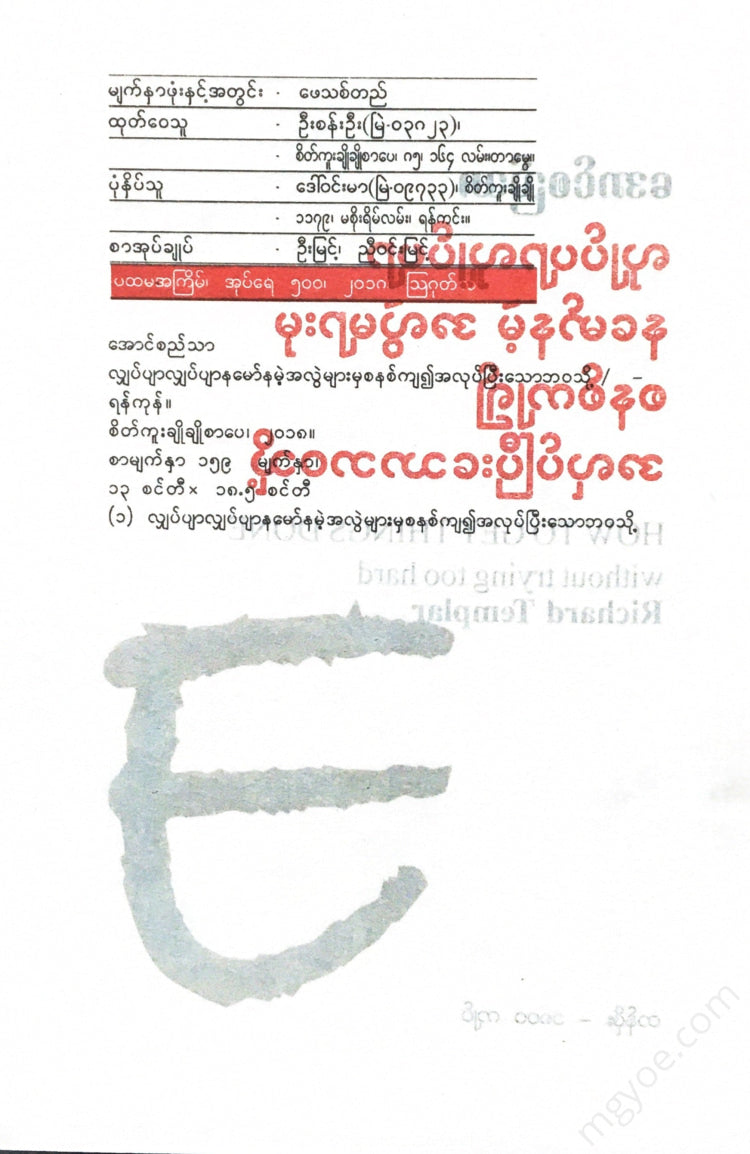 မျက်နှာဖုံးနှင့်အတွင်း - ဖေသစ်တည်
ထုတ်ဝေသူ - ဦးစန်းဦး(မြဲ-၀၃၈၂၃)၊
- စိတ်ကူးချိုချိုစာပေ၊ ၈၅၊ ၁၆၄ လမ်း၊တာမွေ။
ပုံနှိပ်သူ - ဒေါ်ဝင်းမာ(မြဲ-၀၉၇၃၃)၊ စိတ်ကူးချိုချို
- ၁၁၇၉၊ မစိုးရိမ်လမ်း၊ ရန်ကင်း။
စာအုပ်ချုပ် - ဦးမြင့်၊ ညီဝင်းမြင့်
ပထမအကြိမ်၊ အုပ်ရေ ၅၀၀၊ ၂၀၁၈ ဩဂုတ်လ
အောင်စည်သာ
လျှပ်ပျာလျှပ်ပျာနမော်နမဲ့အလွဲများမှစနစ်ကျ၍အလုပ်ပြီးသောဘဝသို့ / –
ရန်ကုန်။
စိတ်ကူးချိုချိုစာပေ၊ ၂၀၁၈။
စာမျက်နှာ ၁၅၉ မျက်နှာ၊
၁၃ စင်တီ × ၁၈.၅ စင်တီ
(၁) လျှပ်ပျာလျှပ်ပျာနမော်နမဲ့အလွဲများမှစနစ်ကျ၍အလုပ်ပြီးသောဘဝသို့
HOW TO GET THINGS DONE
without trying too hard
Richard Templar
mgyoe.com